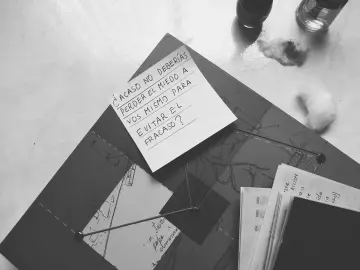 ¿ACASO NO DEBERÍAS
PERDER EL MIEDO A
VOS MISMO PARA
EVITAR EL
FRACASO?